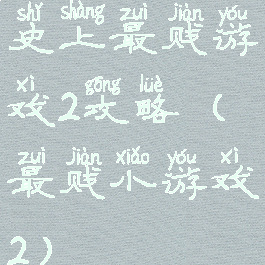 shǐ shàng zuì jiàn yóu
史上最贱游
xì gōng lüè
戏2攻略(
zuì jiàn xiǎo yóu xì
最贱小游戏
2)